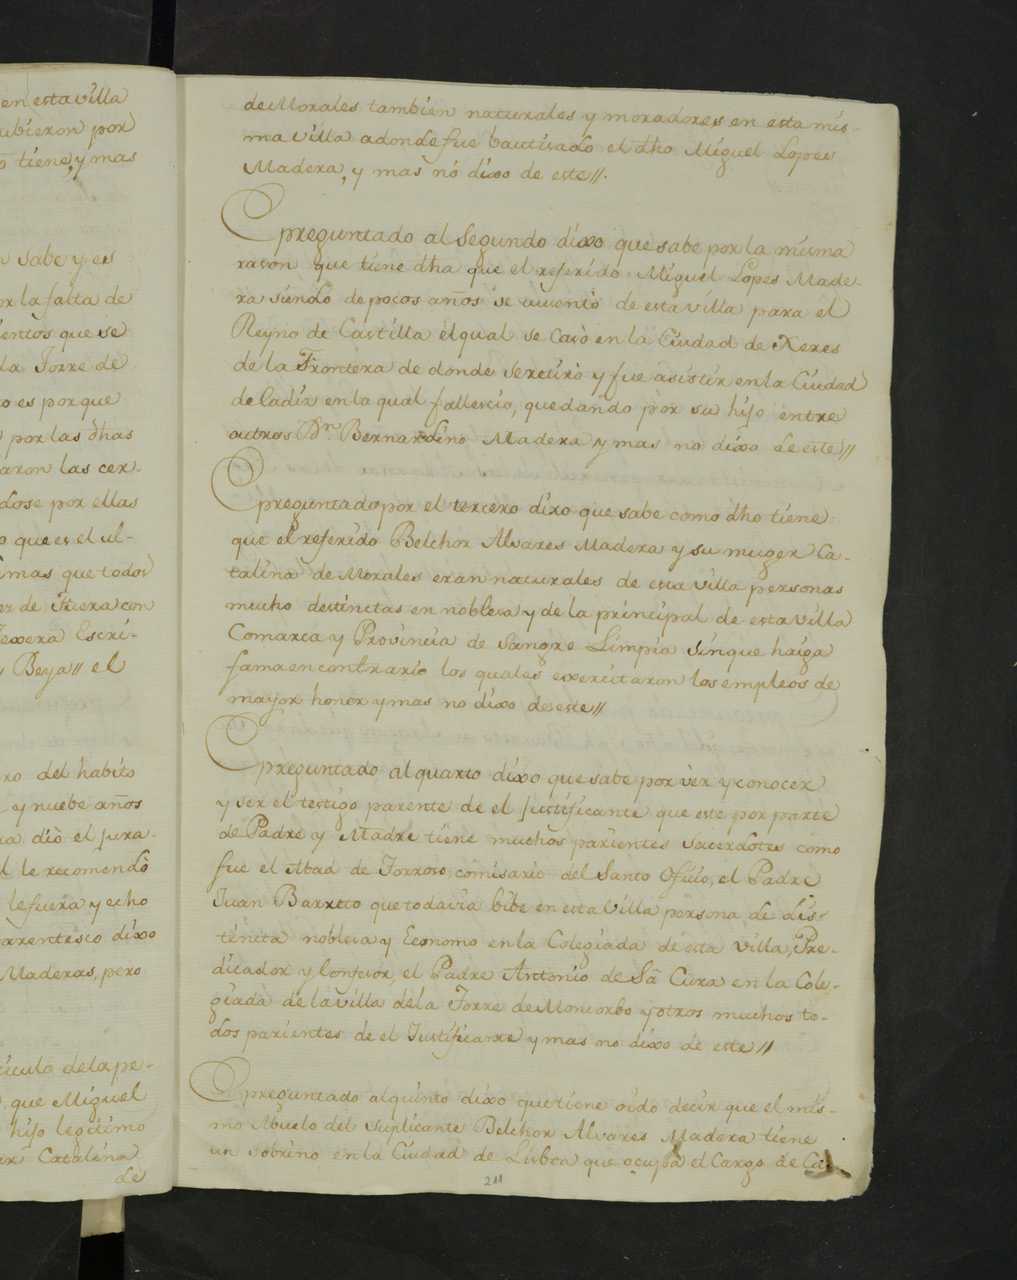 en esta villa
ubieron por
o tiene, y mas
sabe y es
or la falta de
ientos que se
la Torre de
o es porque
por las dhas
aron las cer-
dose por ellas
o que es el ul-
mas que todos
er de fuera con
Texera Escri-
Beya// el
ro del habito
y nuebe años
ra diò el jura-
l le recomendò
le fuera y echo
arentesco dixo
Maderas, pero
iculo de la pe-
que Miguel
hijo legitimo
ar Catalina
de
de Morales tambien naturales y moradores en esta mis-
ma Villa adonde fue bautisado el dho Miguel Lopes
Madera, y mas nó dixo de este//.
preguntado al segundo dixo que sabe por la misma
rason que tiene dha que el referido Miguel Lopes Made-
ra siendo de pocos años se ausentò de esta villa para el
Reyno de Castilla el qual se casò en la Ciudad de Xeres
de la Frontera de donde se retirò y fue asistir en la Ciudad
de Cadix en la qual fallescio, quedando por su hijo entre
autros Dn Bernardino Madera y mas no dixo de este//
preguntado por el tercero dixo que sabe como dho tiene
que el referido Belchor Alvares Madera y su muger Ca-
talina de Morales eran naturales de esta villa personas
mucho destinctas en noblesa y de la principal de esta villa
Comarca y Provincia de sangre Limpia sin que haiga
fama en contrario los quales exercitaron los empleos de
mayor honor y mas no dixo de este//
preguntado al quarto dixo que sabe por ver y conocer
y ser el testigo parente de el justificante que este por parte
de Padre y Madre tiene muchos parientes sacerdotes como
fue el Abad de Torroso, comisario del Santo Oficio, el Padre
Juan Barreto que todavia bibe en esta Villa persona de dis-
tencta noblesa y Economo en la Colegiada de esta villa, Pre-
dicador y Confesor el Padre Antonio de Sâ Cura en la Cole-
giada de la villa de la Torre de Moncorbo y otros muchos to-
dos parientes de el Justificante y mas no dixo de este//
preguntado al quinto dixo que tiene oido decir que el mis-
mo Abuelo del suplicante Belchor Alvares Madera tiene
un sobrino en la Ciudad de Lisboa que ocupa el Cargo de Ca-
211